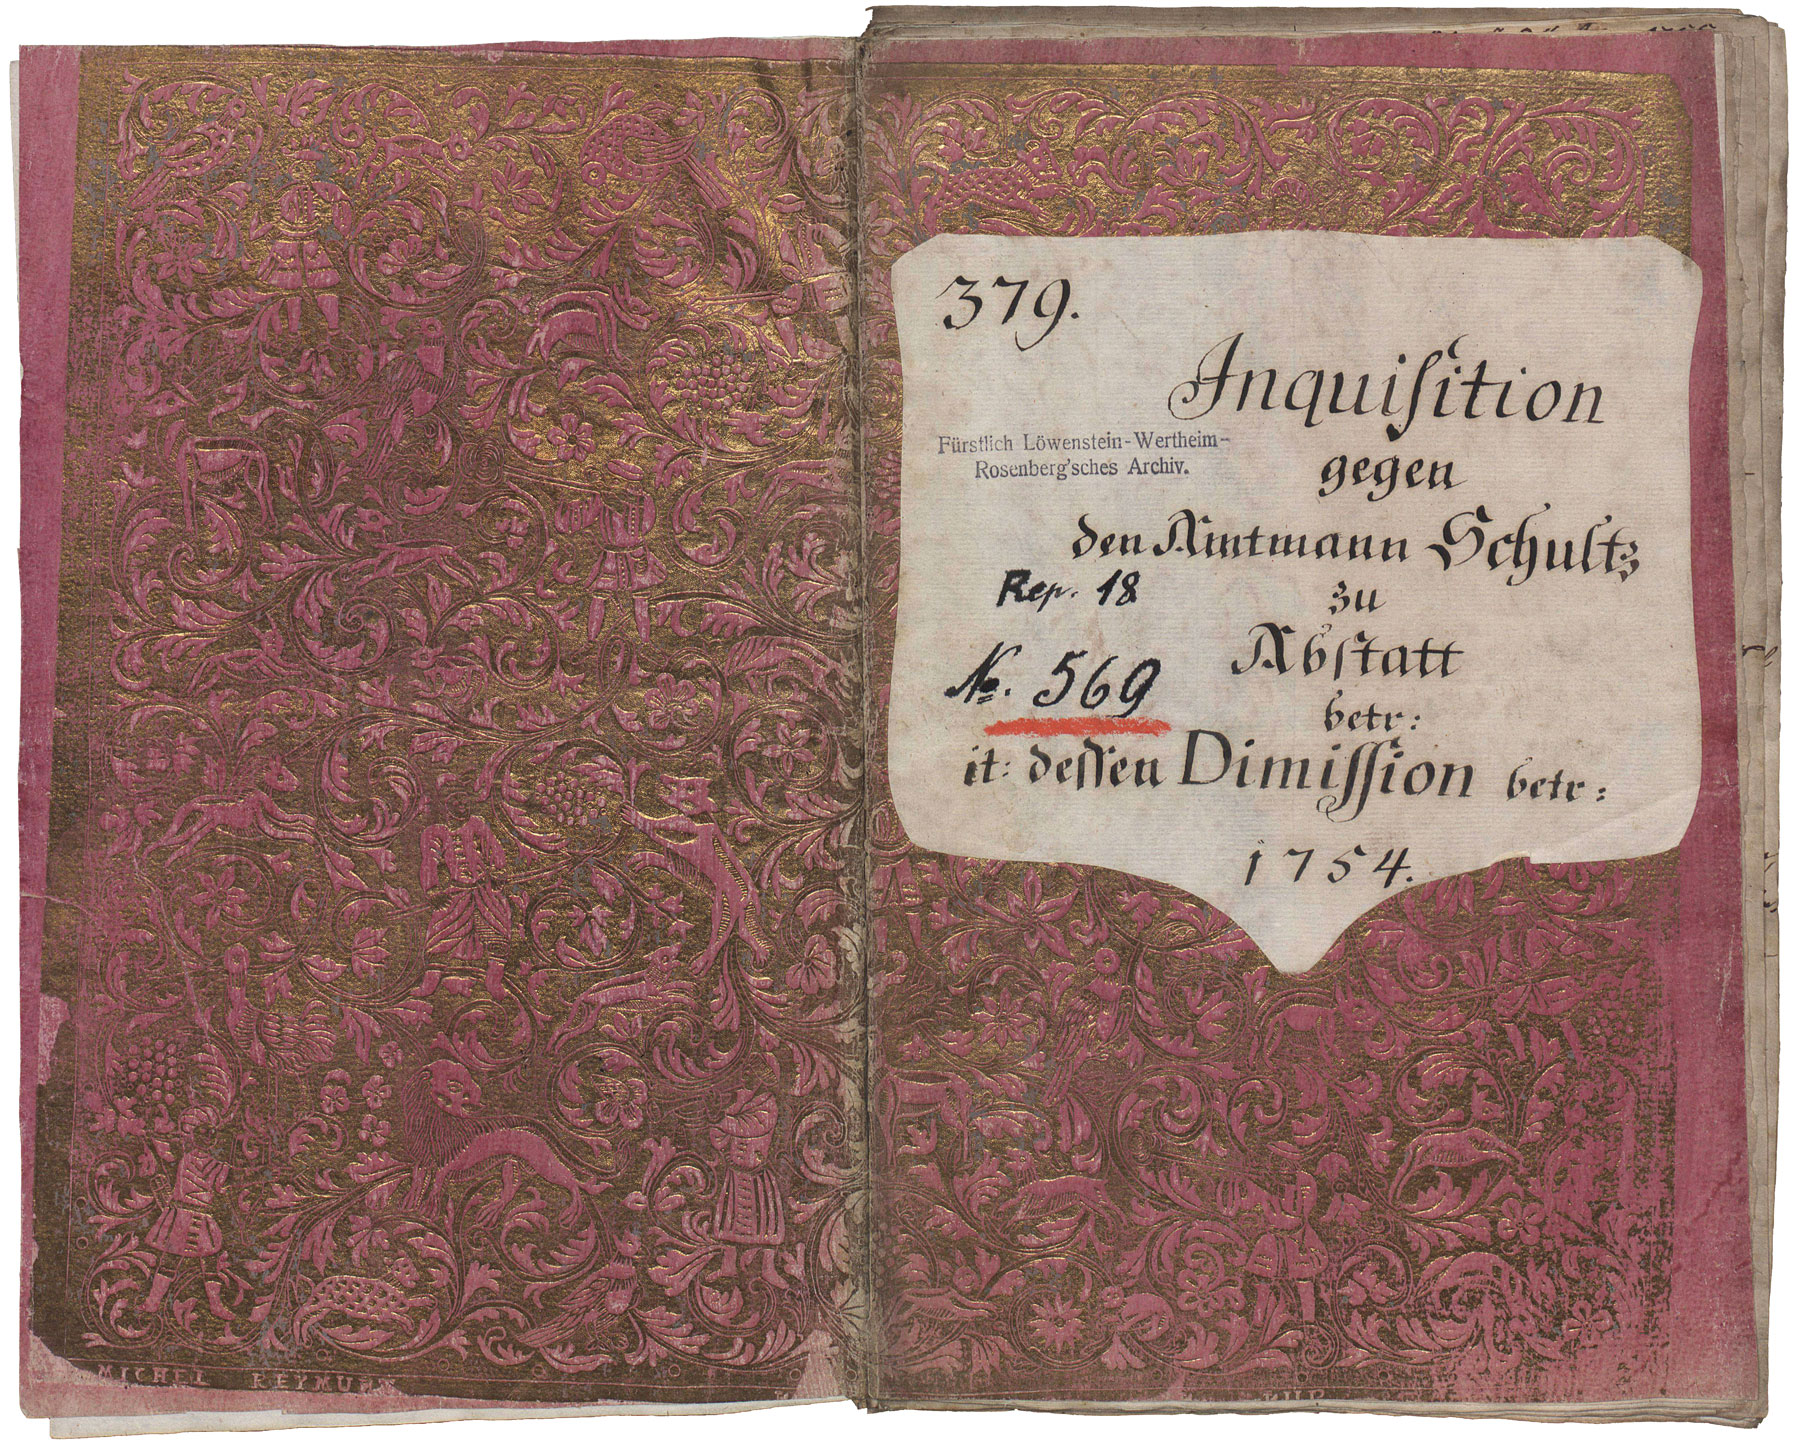 379.
Inquiſition
gegen
Fürstlich Löwenstein-Wertheim-
Rosenberg'sches Archiv.
den Amtmann Schultz
zu
Rep. 18
Abſtatt
No. 569
betr:
it: deſſen Dimiſſion betr:
1754.
MICHEL REYMUNT